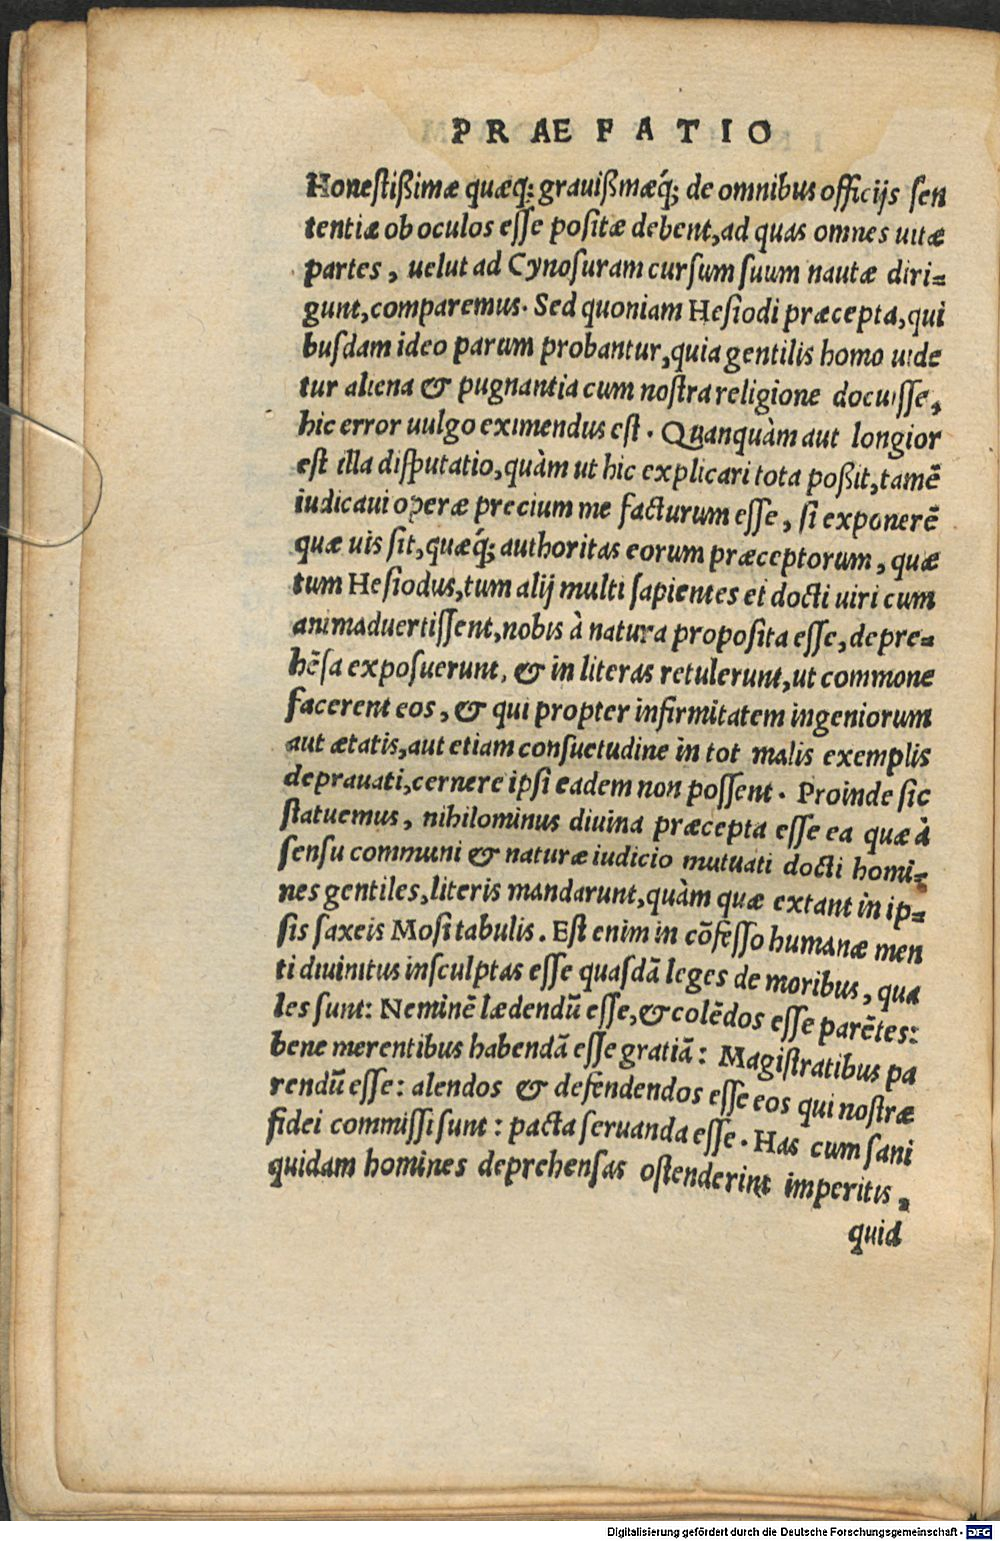 PRAEFATIO
Honestißimæ quæq́; grauißmæq́; de omnibus officijs sen
tentiæ ob oculos esse positæ debent, ad quas omnes uitæ
partes, uelut ad Cynosuram cursum suum nautæ diri-
gunt, comparemus. Sed quoniam Hesiodi præcepta, qui
busdam ideo parum probantur, quia gentilis homo uide
tur aliena & pugnantia cum nostra religione docuisse,
hic error uulgo eximendus est. Quanquàm aut longior
est illa disputatio, quàm ut hic explicari tota poßit, tamē
iudicaui operæ precium me facturum esse, si exponerē
quæ uis sit, quæq́; authoritas eorum præceptorum, quæ
tum Hesiodus, tum alij multi sapientes et docti uiri cum
animaduertissent, nobis à natura proposita esse, depre-
hēsa exposuerunt, & in literas retulerunt, ut commone
facerent eos, & qui propter infirmitatem ingeniorum
aut ætatis, aut etiam consuetudine in tot malis exemplis
deprauati, cernere ipsi eadem non possent. Proinde sic
statuemus, nihilominus diuina præcepta esse ea quæ à
sensu communi & naturæ iudicio mutuati docti homi-
nes gentiles, literis mandarunt, quàm quæ extant in ip-
sis saxeis Mosi tabulis. Est enim in cōfesso humanæ men
ti diuinitus insculptas esse quasdā leges de moribus, qua
les sunt: Neminē lædendū esse, & colēdos esse parētes:
bene merentibus habendā esse gratiā: Magistratibus pa
rendū esse: alendos & defendendos esse eos qui nostræ
fidei commissi sunt: pacta seruanda esse. Has cum sani
quidam homines deprehensas ostenderint imperitis,
quid
Digitalisierung gefördert durch die Deutsche Forschungsgemeinschaft - DFG